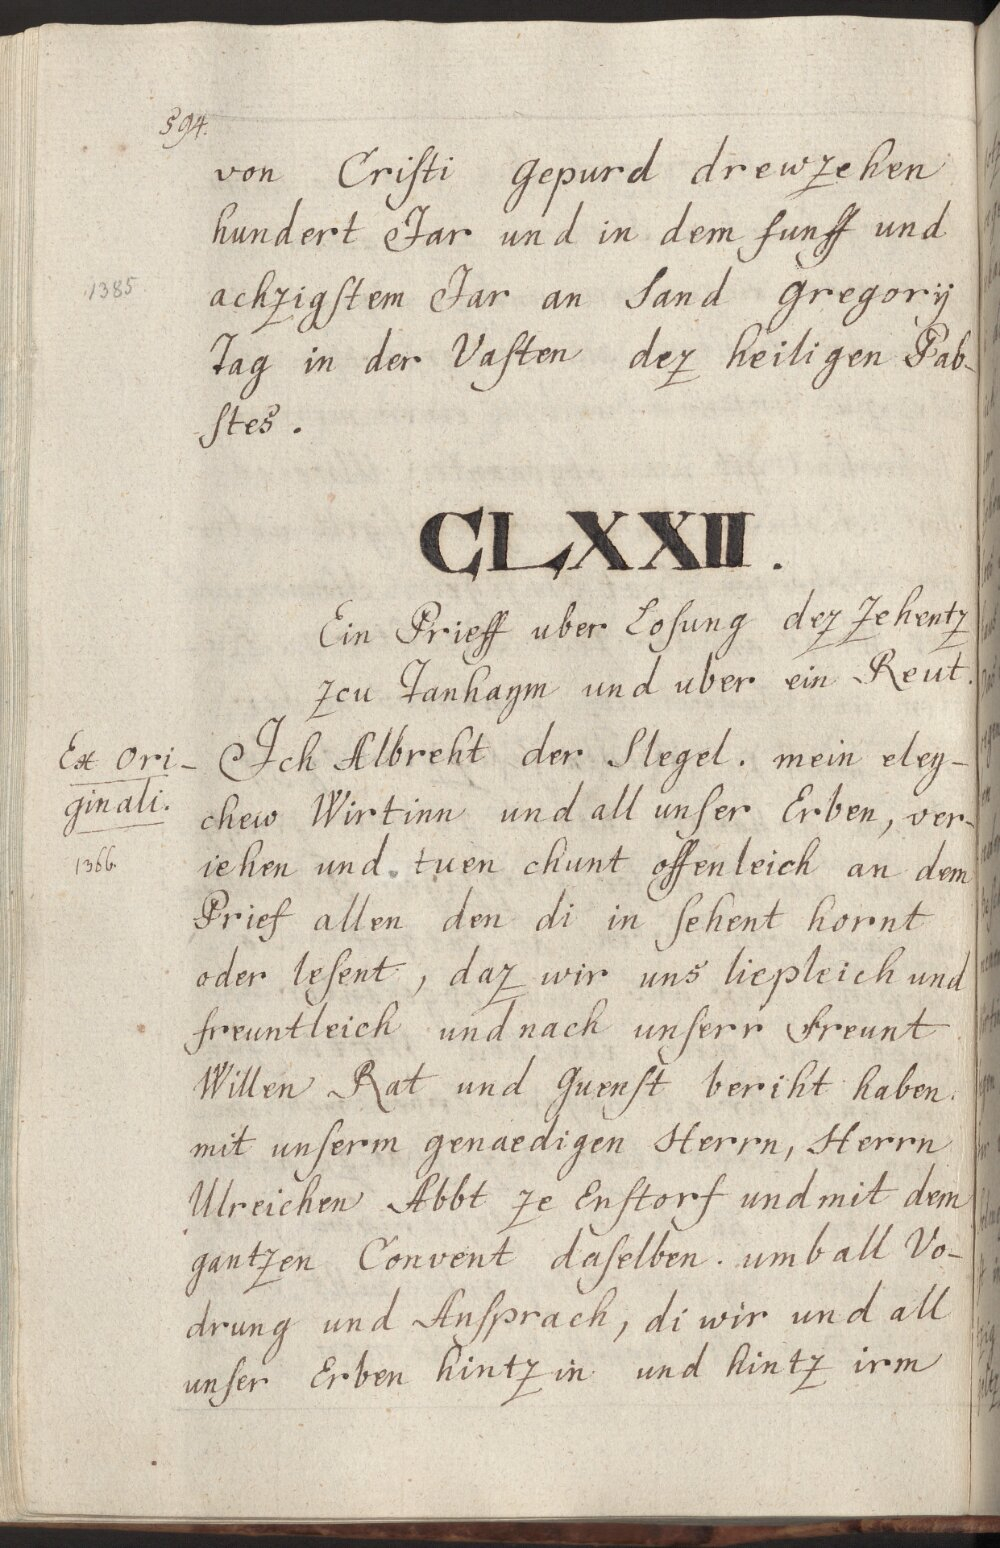 594.
von Cristi gepurd drewzehen
hundert Jar und in dem funff und
1385
achzigstem Jar an Sand Gregorij
Tag in der Vasten dez heiligen Pab-
stes.
CLXXII.
Ein Prieff uber Losung dez Zehentz
zcu Tanhaym und uber ein Reut.
Ex Ori-
ginali.
1366.
Ich Albreht der Slegel. mein eley-
chew Wirtinn und all unser Erben, ver-
iehen und tuen chunt offenleich an dem
Prief allen den di in sehent hornt
oder lesent, daz wir uns liepleich und
freuntleich und nach unserr Freunt
Willen Rat und Guenst beriht haben.
mit unserm genaedigen Herrn, Herrn
Ulreichen Abbt ze Enstorf und mit dem
gantzen Convent daselben. umb all Vo-
drung und Ansprach, di wir und all
unser Erben hintz in und hintz irm